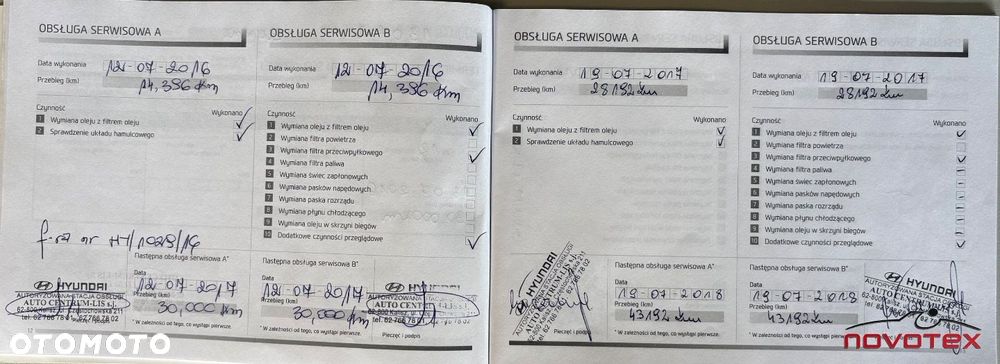 OBSŁUGA SERWISOWA A
Data wykonania 12-07-2016
Przebieg (km) 14,396 km
Czynność Wykonano
1 Wymiana oleju z filtrem oleju
2 Sprawdzenie układu hamulcowego
f-ra nr
HYUNDAI
AUTORYZOWANA STACJA OBSŁUGI
AUTO CENTRUM-LIS s.j.
Częstochowska 211
Następna obsługa serwisowa A*
Data
12-07-2017
Przebieg (km)
30,000 km
* W zależności od tego, co wystąpi pierwsze.
12
OBSŁUGA SERWISOWA B
Data wykonania 12-07-2016
Przebieg (km) 14,396 km
Czynność Wykonano
1 Wymiana oleju z filtrem oleju
2 Wymiana filtra powietrza
3 Wymiana filtra przeciwpyłkowego
4 Wymiana filtra paliwa
5 Wymiana świec zapłonowych
6 Wymiana pasków napędowych
7 Wymiana paska rozrządu
8 Wymiana płynu chłodzącego
9 Wymiana oleju w skrzyni biegów
10 Dodatkowe czynności przeglądowe
Następna obsługa serwisowa B*
Data
12-07-2017
Przebieg (km)
30,000 km
* W zależności od tego, co wystąpi pierwsze.
HYUNDAI
AUTO CENTRUM-LIS s.j.
tel. 62 766 78 01, 62 766 78 02
Pieczęć i podpis
OBSŁUGA SERWISOWA A
Data wykonania 19-07-2017
Przebieg (km) 28192 km
Czynność Wykonano
1 Wymiana oleju z filtrem oleju
2 Sprawdzenie układu hamulcowego
HYUNDAI
Następna obsługa serwisowa A*
Data
19-07-2018
Przebieg (km)
43192 km
* W zależności od tego, co wystąpi pierwsze.
Pieczęć i podpis
OBSŁUGA SERWISOWA B
Data wykonania 19-07-2017
Przebieg (km) 28192 km
Czynność Wykonano
1 Wymiana oleju z filtrem oleju
2 Wymiana filtra powietrza
3 Wymiana filtra przeciwpyłkowego
4 Wymiana filtra paliwa
5 Wymiana świec zapłonowych
6 Wymiana pasków napędowych
7 Wymiana paska rozrządu
8 Wymiana płynu chłodzącego
9 Wymiana oleju w skrzyni biegów
10 Dodatkowe czynności przeglądowe
Następna obsługa serwisowa B*
Data
19-07-2018
Przebieg (km)
43192 km
* W zależności od tego, co wystąpi pierwsze.
HYUNDAI
AUTO CENTRUM
OTOMOTO
NOVOTEX